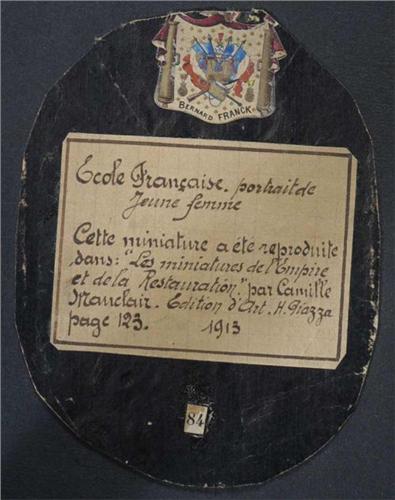 BERNARD FRANCK
Ecole Française. portrait de
Jeune femme
Cette miniature a été reproduite
dans: "Les miniatures de l'Empire
et de la Restauration," par Camille
Mauclair. Edition d'Art. H. Piazza
page 123. 1913
84